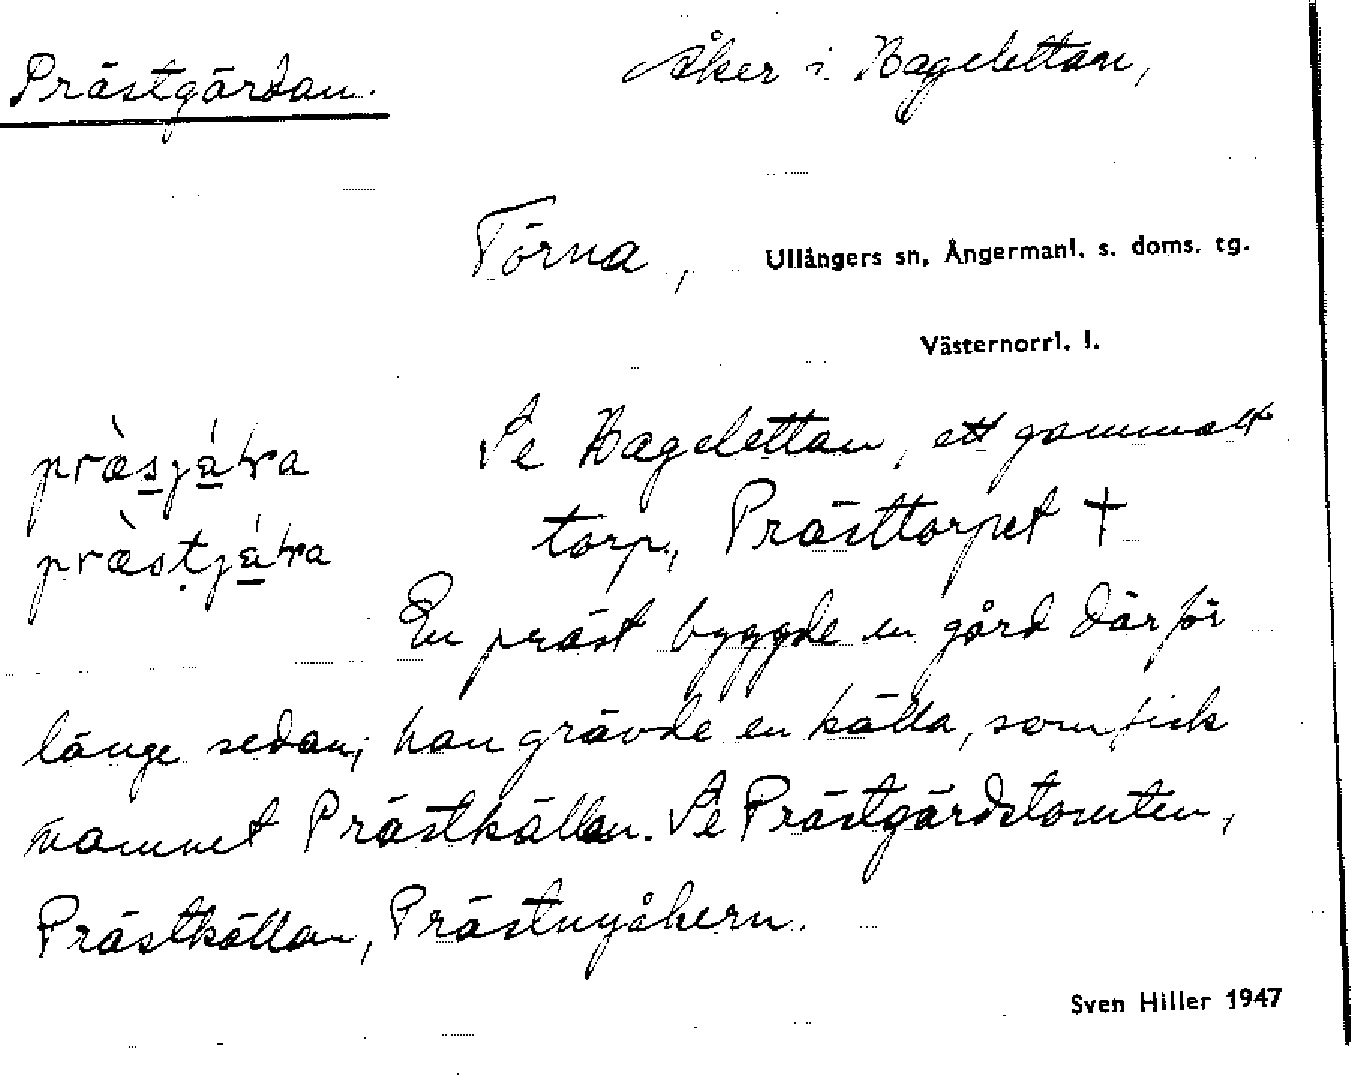 Prästgärdan. Åker i Hagelettan,
Törna, Ullångers sn, Ångermanl. s. doms. tg.
Västernorrl. l.
Se Hagelettan, ett gammalt
torp, Prästtorpet †
En präst byggde en gård där för
länge sedan; han grävde en källa, som fick
namnet Prästkällan. Se Prästgärdstomten,
Prästkällan, Prästnyåkern.
Sven Hiller 1947